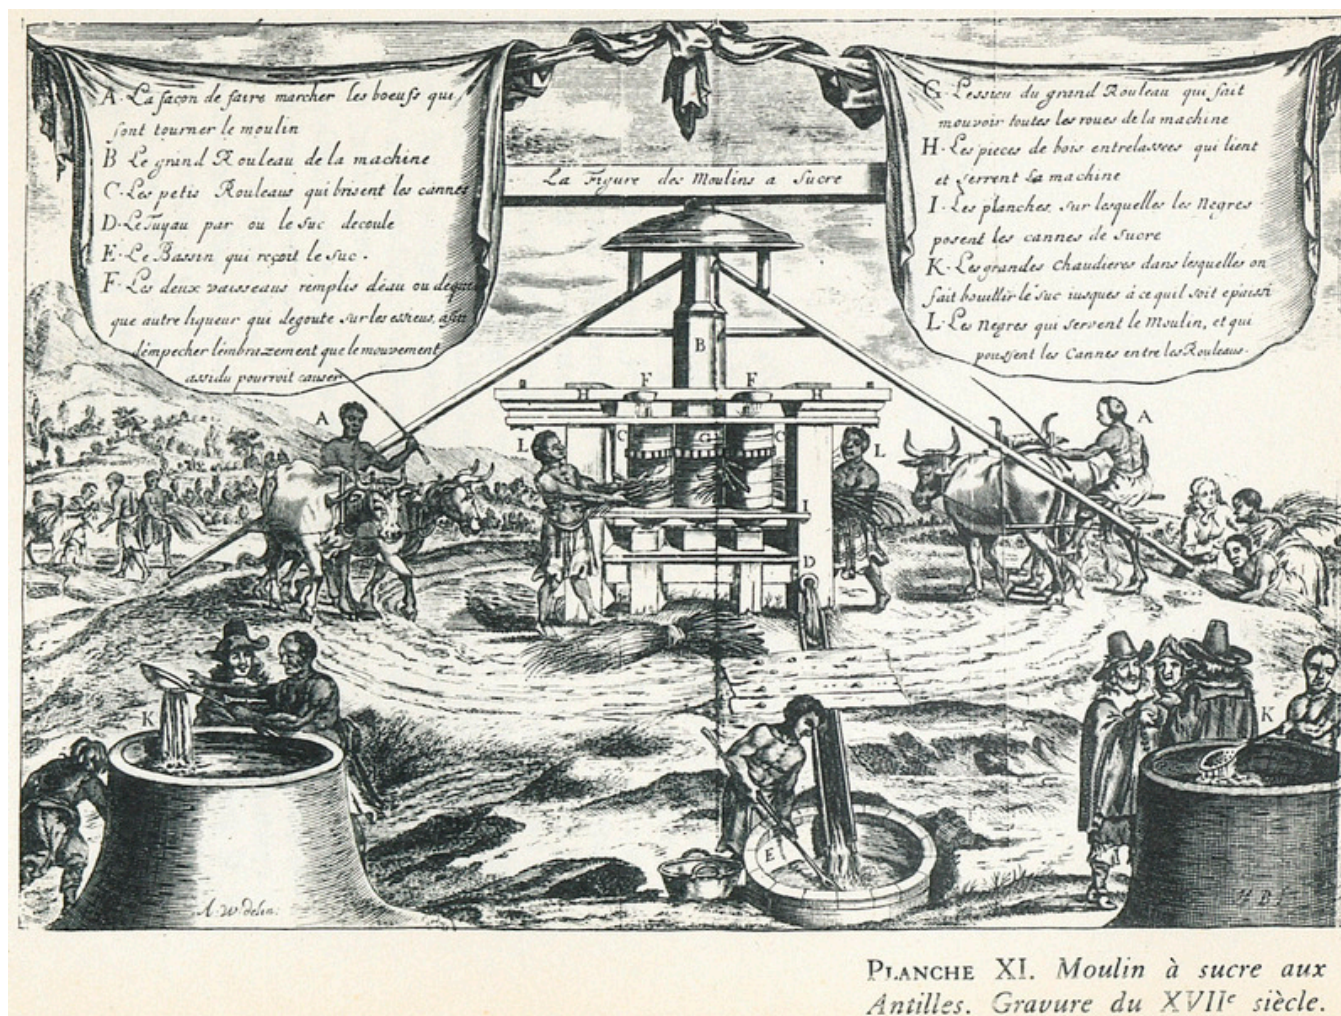 A. La façon de faire marcher les boeufs qui
font tourner le moulin
B Le grand Rouleau de la machine
C. Les petis Rouleaus qui brisent les cannes
D. Le Tuyau par ou le suc decoule
E. Le Bassin qui reçoit le suc.
F. Les deux vaisseaus remplis déau ou de
que autre liqueur qui degoute sur les essieus, afin
dempecher lembrazement que le mouvement
assidu pourroit causer
La Figure des Moulins a Sucre
G. Lessieu du grand Rouleau qui fait
mouvoir toutes les roues de la machine
H. Les pieces de bois entrelassees qui lient
et serrent la machine
I. Les planches, sur lesquelles les Negres
posent les cannes de sucre
K. Les grandes chaudieres dans lesquelles on
fait bouillir le suc iusques à ce quil soit epaissi
L. Les Negres qui servent le Moulin, et qui
poussent les Cannes entre les Rouleaus.
B
F F
H H
A A
L C G C L
I
D
K K
E
A. W. delin.
H B f
PLANCHE XI. Moulin à sucre aux
Antilles. Gravure du XVIIe siècle.